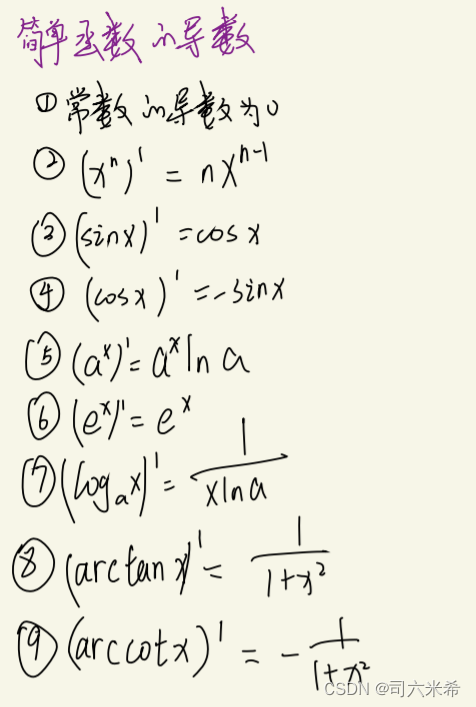 简单函数的导数
① 常数的导数为0
② (xⁿ)' = nxⁿ⁻¹
③ (sinx)' = cosx
④ (cosx)' = -sinx
⑤ (aˣ)' = aˣlna
⑥ (eˣ)' = eˣ
⑦ (logₐx)' = 1/(xlna)
⑧ (arctanx)' = 1/(1+x²)
⑨ (arccotx)' = -1/(1+x²)
CSDN @司六米希